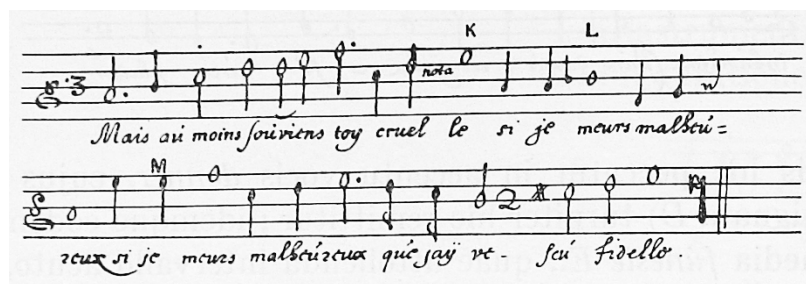 K L
3
nota
Mais aú moins soúviens toy cruel le si je meurs malheú=
M
2
reux si je meurs malheúreux qúe jaÿ ve- scú fidelle.